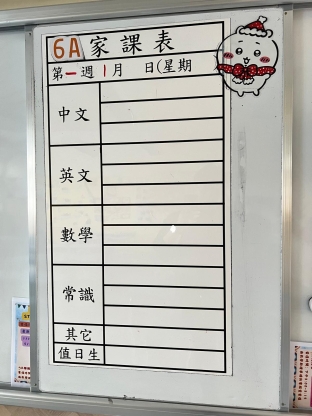 6A家課表
第一週 1月 日(星期
中文
英文
數學
常識
其它
值日生